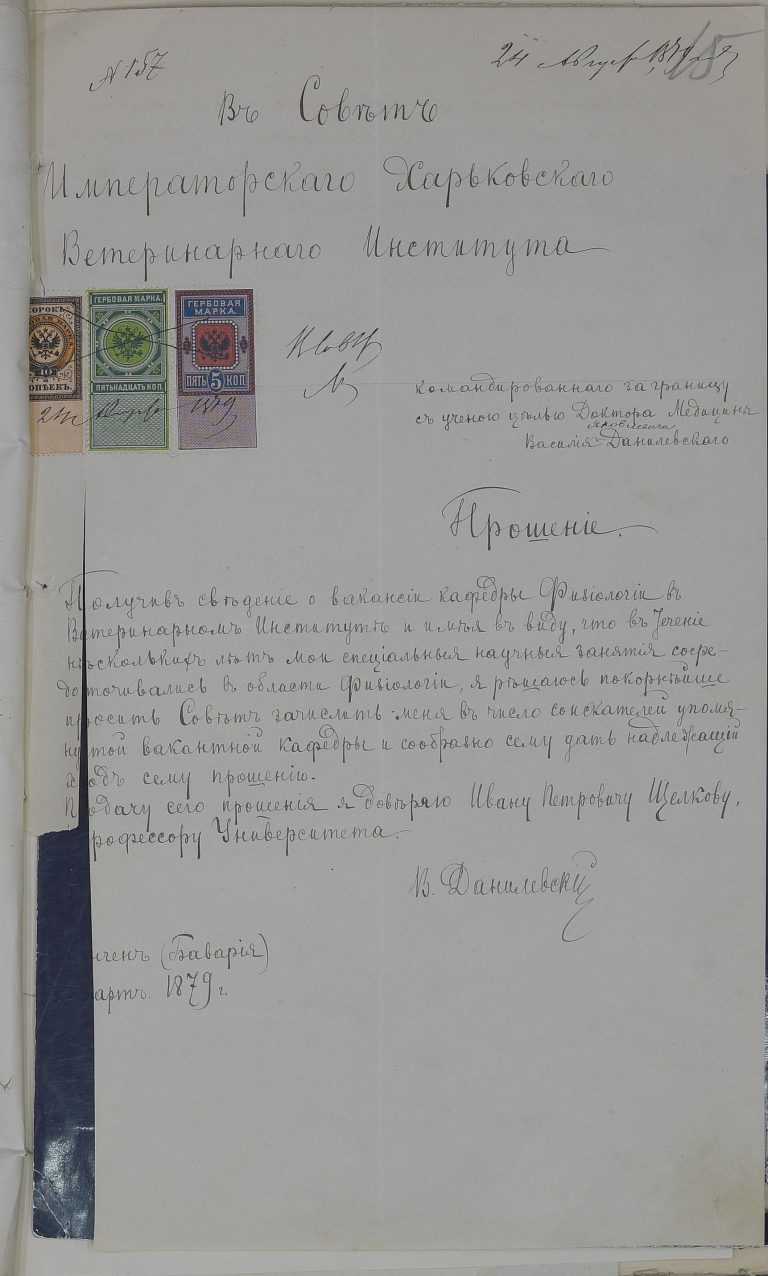 № 157
24 Августа 1879 г.
15
Въ Совѣтъ
Императорскаго Харьковскаго
Ветеринарнаго Института
ОРОКЪ
10
КОПѢЕКЪ
ГЕРБОВАЯ МАРКА
ПЯТЬНАДЦАТЬ КОП.
ГЕРБОВАЯ
МАРКА
ПЯТЬ 5 КОП.
24 Августа 1879
командированнаго за границу
съ ученою цѣлью Доктора Медицины
Яковлевича
Василія Данилевскаго
Прошеніе.
Получивъ свѣденіе о вакансіи кафедры Физіологіи въ
Ветеринарномъ Институтѣ и имѣя въ виду, что въ теченіе
нѣсколькихъ лѣтъ мои спеціальныя научныя занятія сосре-
доточивались въ области Физіологіи, я рѣшаюсь покорнѣйше
просить Совѣтъ зачислить меня въ число соискателей упомя-
нутой вакантной кафедры и сообразно сему дать надлежащій
ходъ сему прошенію.
Подачу сего прошенія я довѣряю Ивану Петровичу Щелкову,
рофессору Университета.
В. Данилевскій
нченъ (Баварія)
артъ. 1879 г.